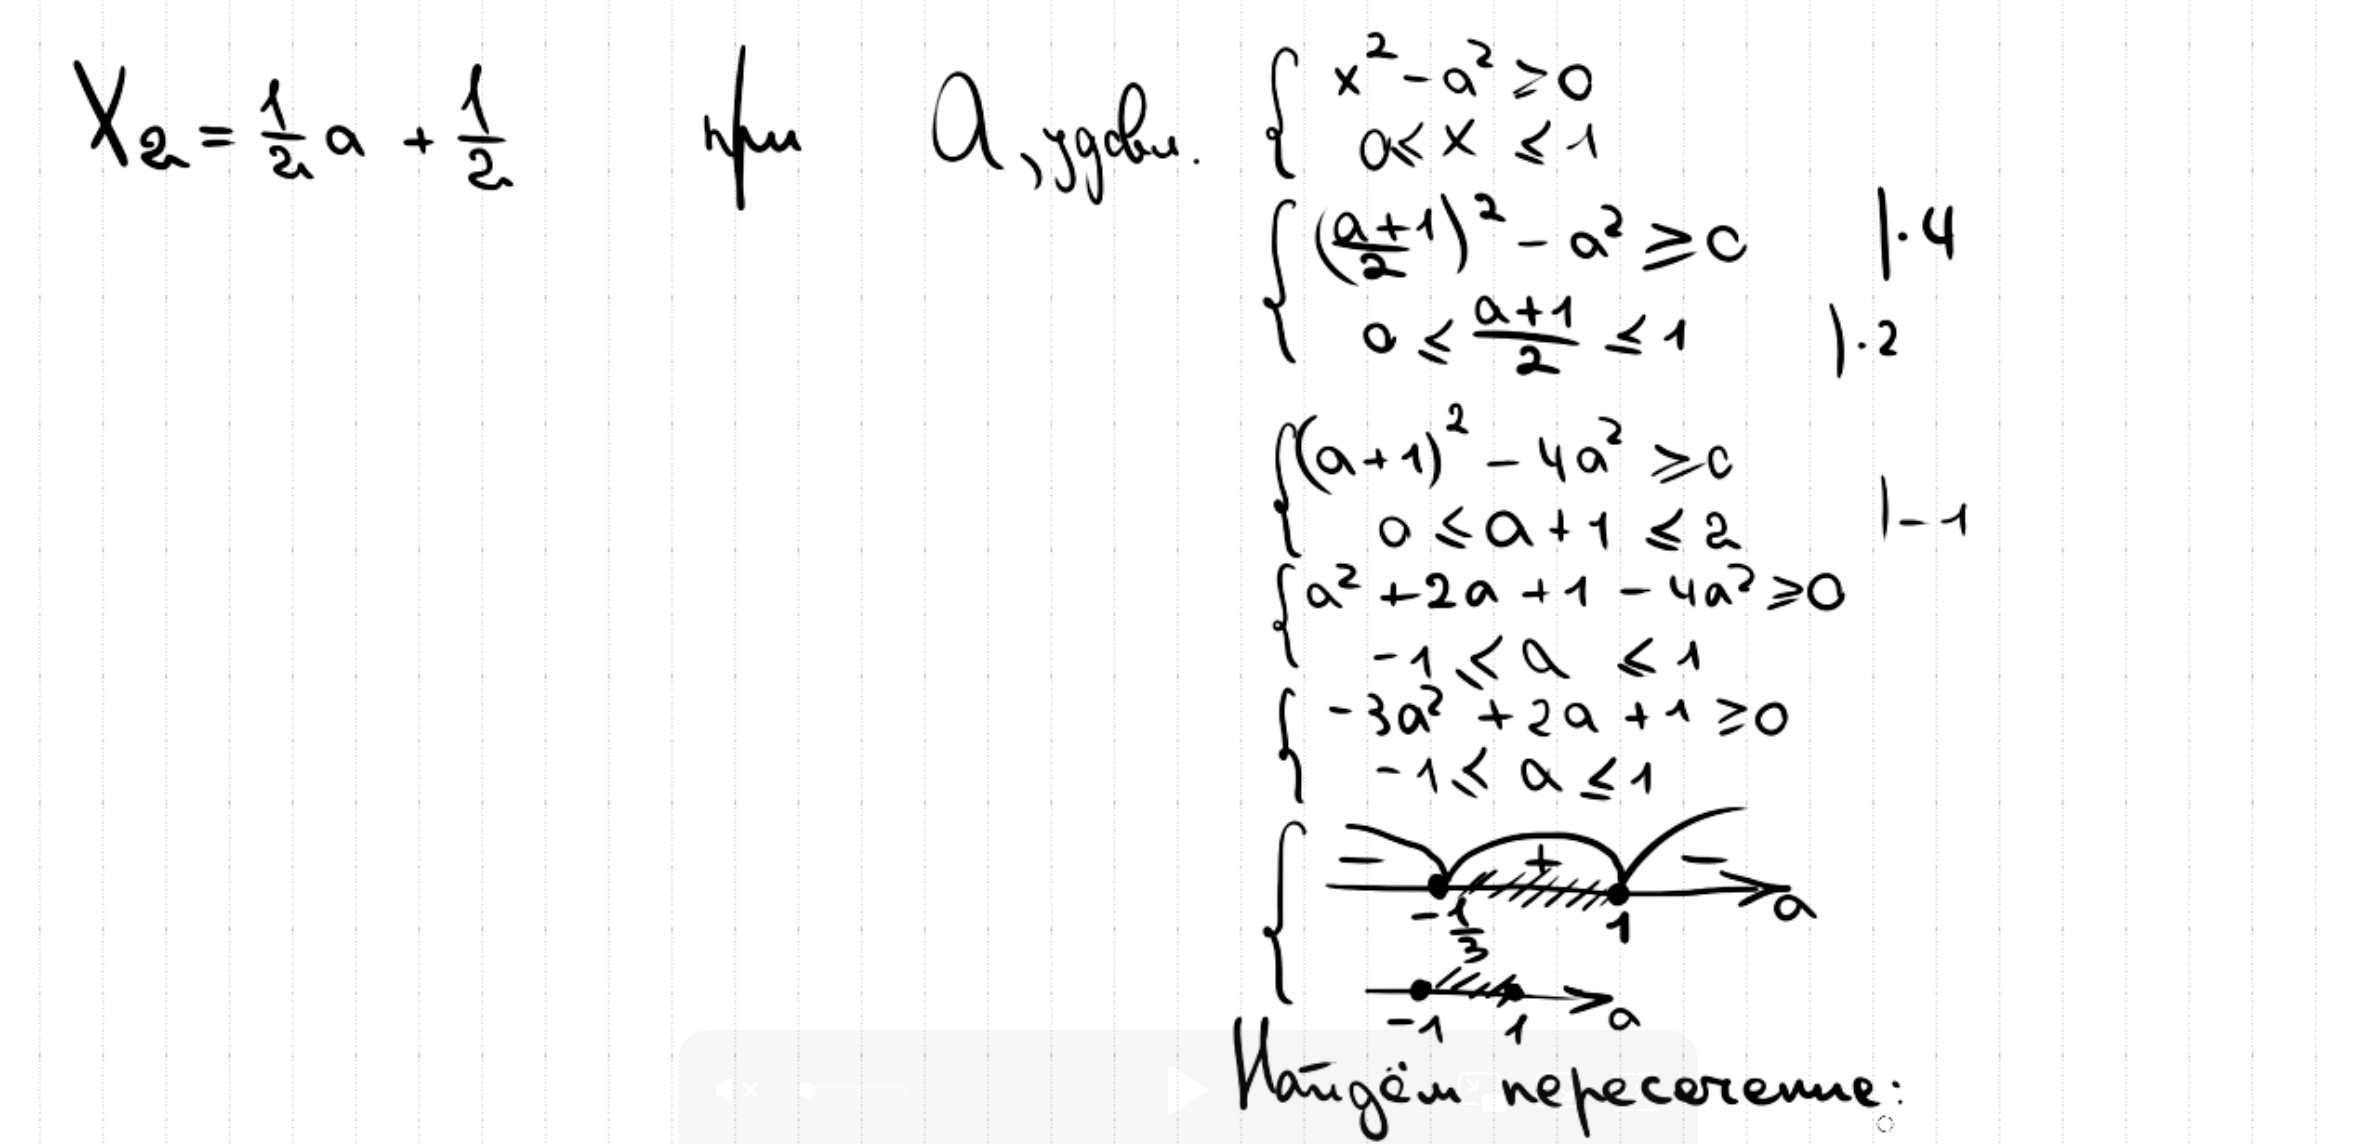 X₂ = 1/2 a + 1/2 при a, удовл. { x² - a² ≥ 0
0 ≤ x ≤ 1
{ ((a+1)/2)² - a² ≥ 0 | · 4
0 ≤ (a+1)/2 ≤ 1 | · 2
{ (a+1)² - 4a² ≥ 0
0 ≤ a + 1 ≤ 2 | - 1
{ a² + 2a + 1 - 4a² ≥ 0
-1 ≤ a ≤ 1
{ -3a² + 2a + 1 ≥ 0
-1 ≤ a ≤ 1
{ - + -
-1/3 1 a
-1 1 a
Найдём пересечение: